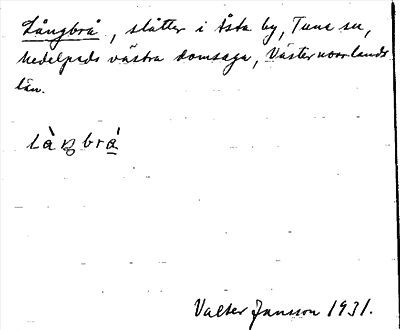 Långbrå, slåtter i Åsta by, Tuna sn,
Medelpads västra domsaga, Västernorrlands
län.
Valter Jansson 1931.